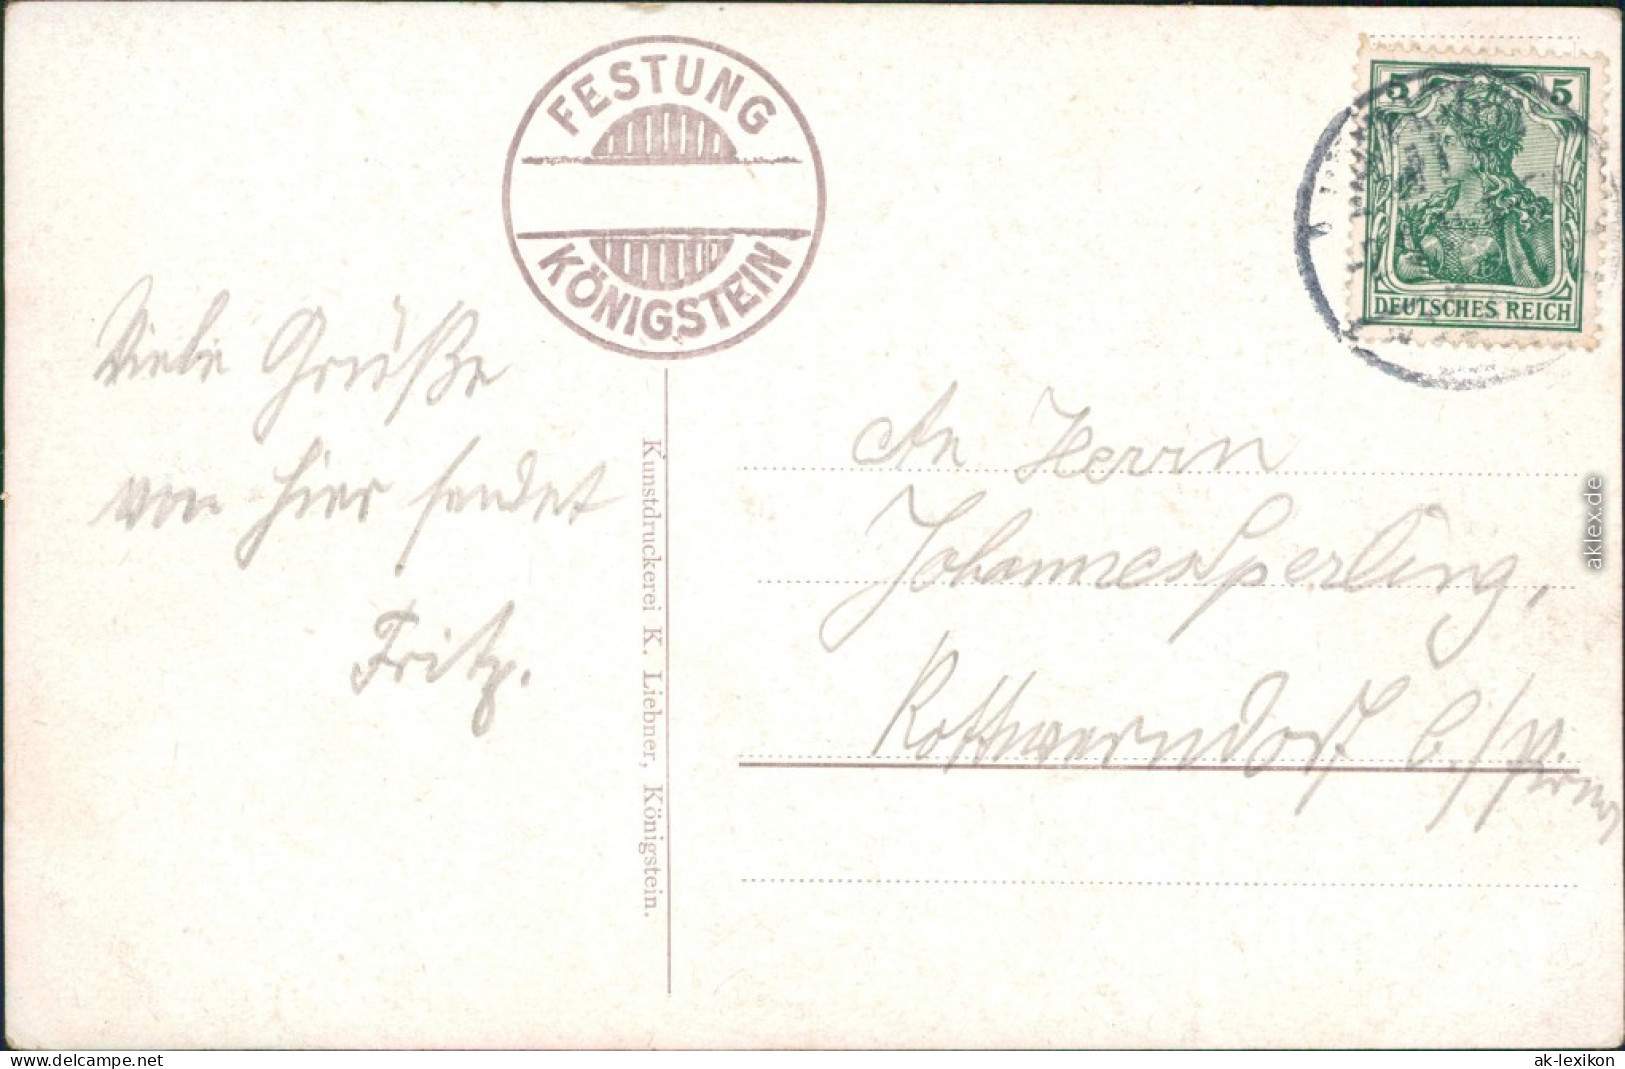 FESTUNG
KÖNIGSTEIN
5 5
DEUTSCHES REICH
Viele Grüße
von hier sendet
Fritz.
Kunstdruckerei K. Liebner, Königstein.
An Herrn
Johannes Sperling,
Rottwerndorf b./P.
Pirna
aklex.de
www.ansichtskarten-lexikon.de
ak-lexikon